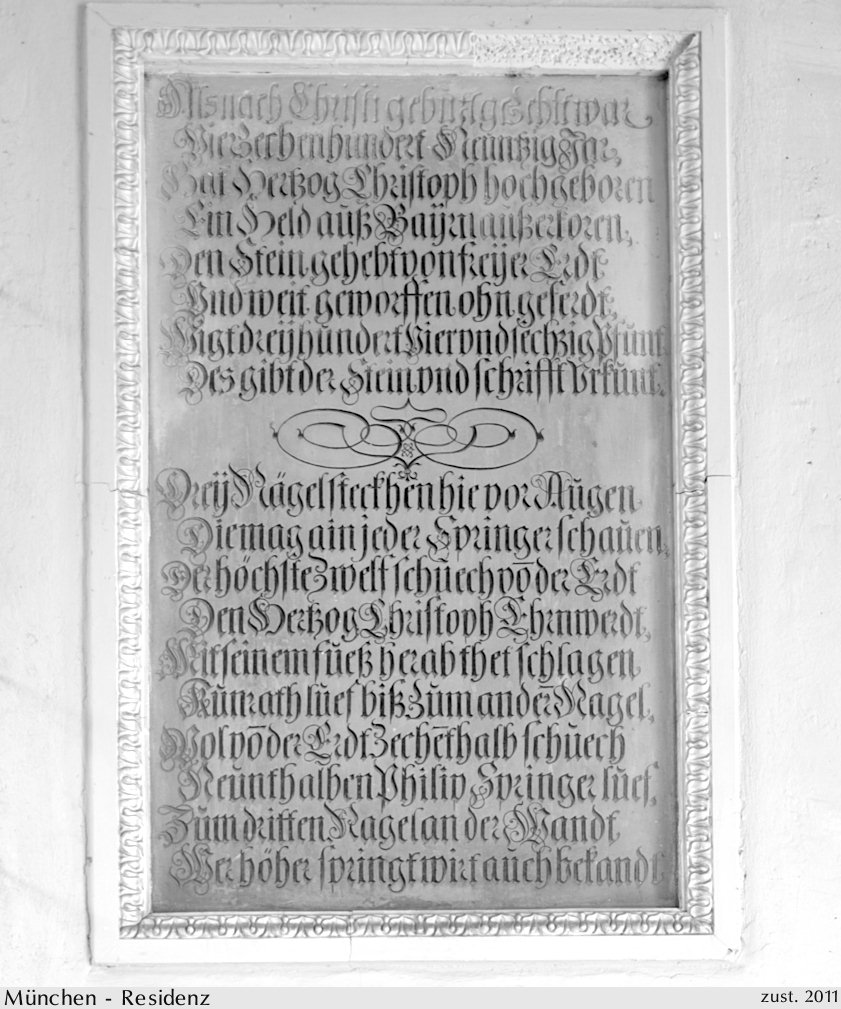 Als nach Christi geburt gezehlt war
Vierzechenhundert Neuntzig Jar,
Hat Hertzog Christoph hochgeboren
Ein Held auß Bayrn außerkoren,
Den Stein gehebt von freÿer Erdt
Vnd weit geworffen ohn geferdt,
Wigt dreÿhundert Vier vnd sechzig Pfunt
Des gibt der Stein vnd schrifft Vrkunt.
Dreÿ Nägel steckhen hie vor Augen
Die mag ain jeder Springer schauen,
Der höchste Zwelf schuech vō der Erdt
Den Hertzog Christoph Ehrnwerdt,
Mit seinem fueß herab thet schlagen
Kunrath luef biß Zum andeꝛn̄ Nagel,
Wol vō der Erdt Zechēthalb schuech
Neunthalben Philip Springer luef,
Zum dritten Nagel an der Wandt,
Wer höher springt wirt auch bekandt.
München - Residenz
zust. 2011